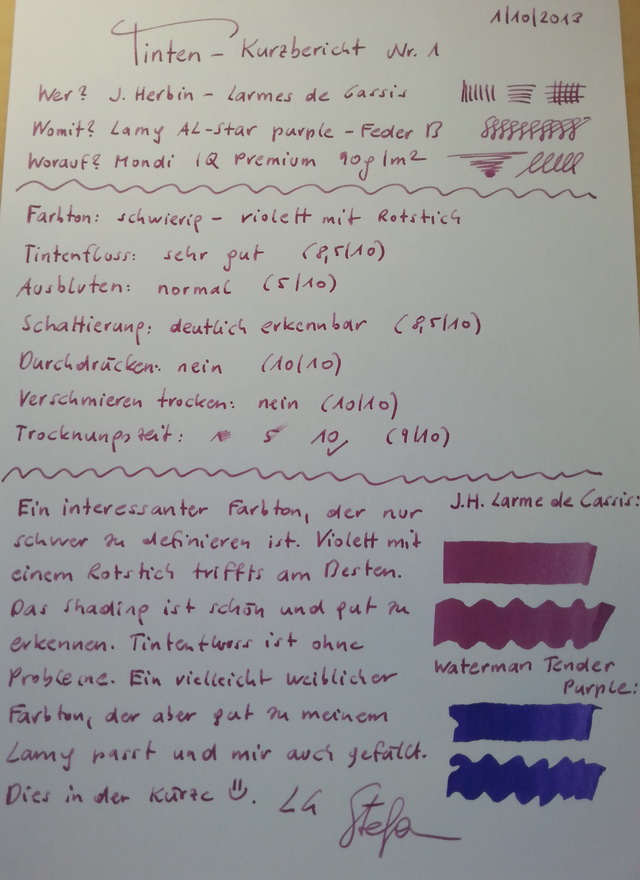 1/10/2013
Tinten - Kurzbericht Nr. 1
Wer? J. Herbin - Larmes de Cassis
Womit? Lamy AL-Star purple - Feder B
Worauf? Mondi IQ Premium 90g/m²
Farbton: schwierig - violett mit Rotstich
Tintenfluss: sehr gut (8,5/10)
Ausbluten: normal (5/10)
Schattierung: deutlich erkennbar (8,5/10)
Durchdrücken: nein (10/10)
Verschmieren trocken: nein (10/10)
Trocknungszeit: 5 10 (9/10)
Ein interessanter Farbton, der nur
schwer zu definieren ist. Violett mit
einem Rotstich triffts am Besten.
Das Shading ist schön und gut zu
erkennen. Tintenfluss ist ohne
Probleme. Ein vielleicht weiblicher
Farbton, der aber gut zu meinem
Lamy passt und mir auch gefällt.
Dies in der Kürze ☺. LG Stefan
J.H. Larme de Cassis:
Waterman Tender
Purple: